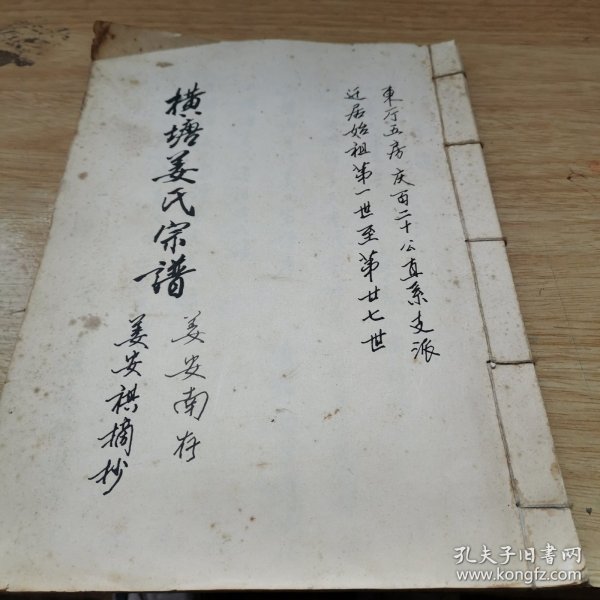 東厅五房庆百二十公直系支派
迁居始祖第一世至第廿七世
横塘姜氏宗譜
姜安南存
姜安祺摘抄
孔夫子旧书网
www.kongfz.com